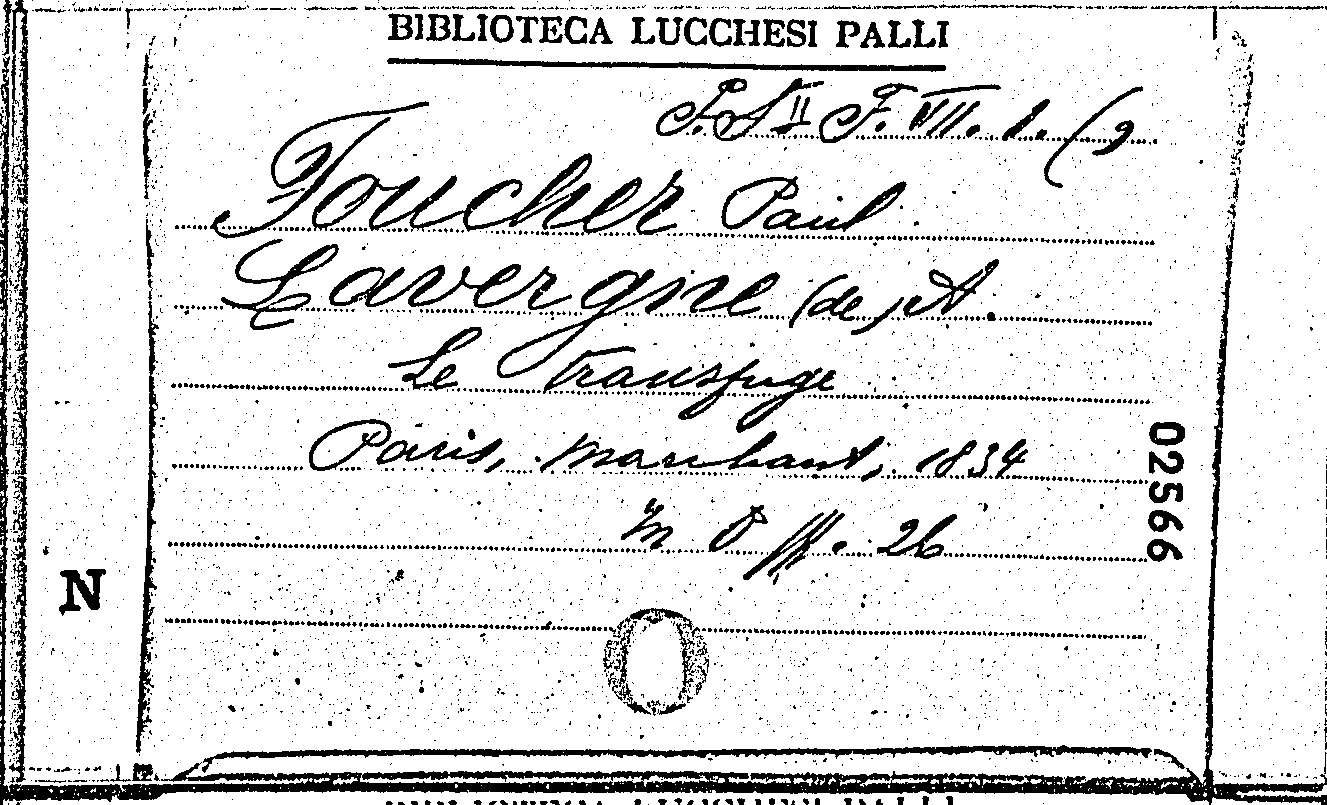 BIBLIOTECA LUCCHESI PALLI
F. VII. 1. (9
Foucher Paul
Lavergne (de) A.
Le Transfuge
Paris, Marchant, 1834
In 8 pp. 26
02566
N